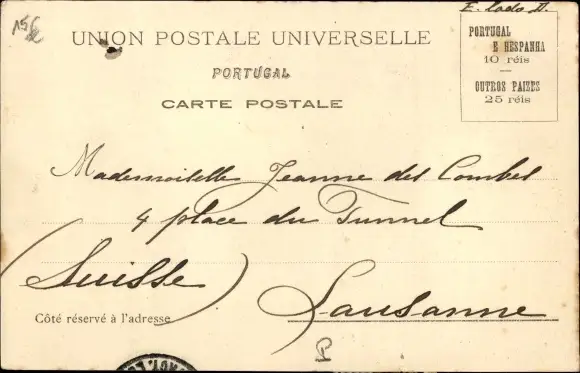 15€
E. lado D.
UNION POSTALE UNIVERSELLE
PORTUGAL
CARTE POSTALE
PORTUGAL
E HESPANHA
10 réis
OUTROS PAIZES
25 réis
Mademoiselle Jeanne des Combes
4 place du Tunnel
(Suisse)
Lausanne
Côté réservé à l'adresse
P